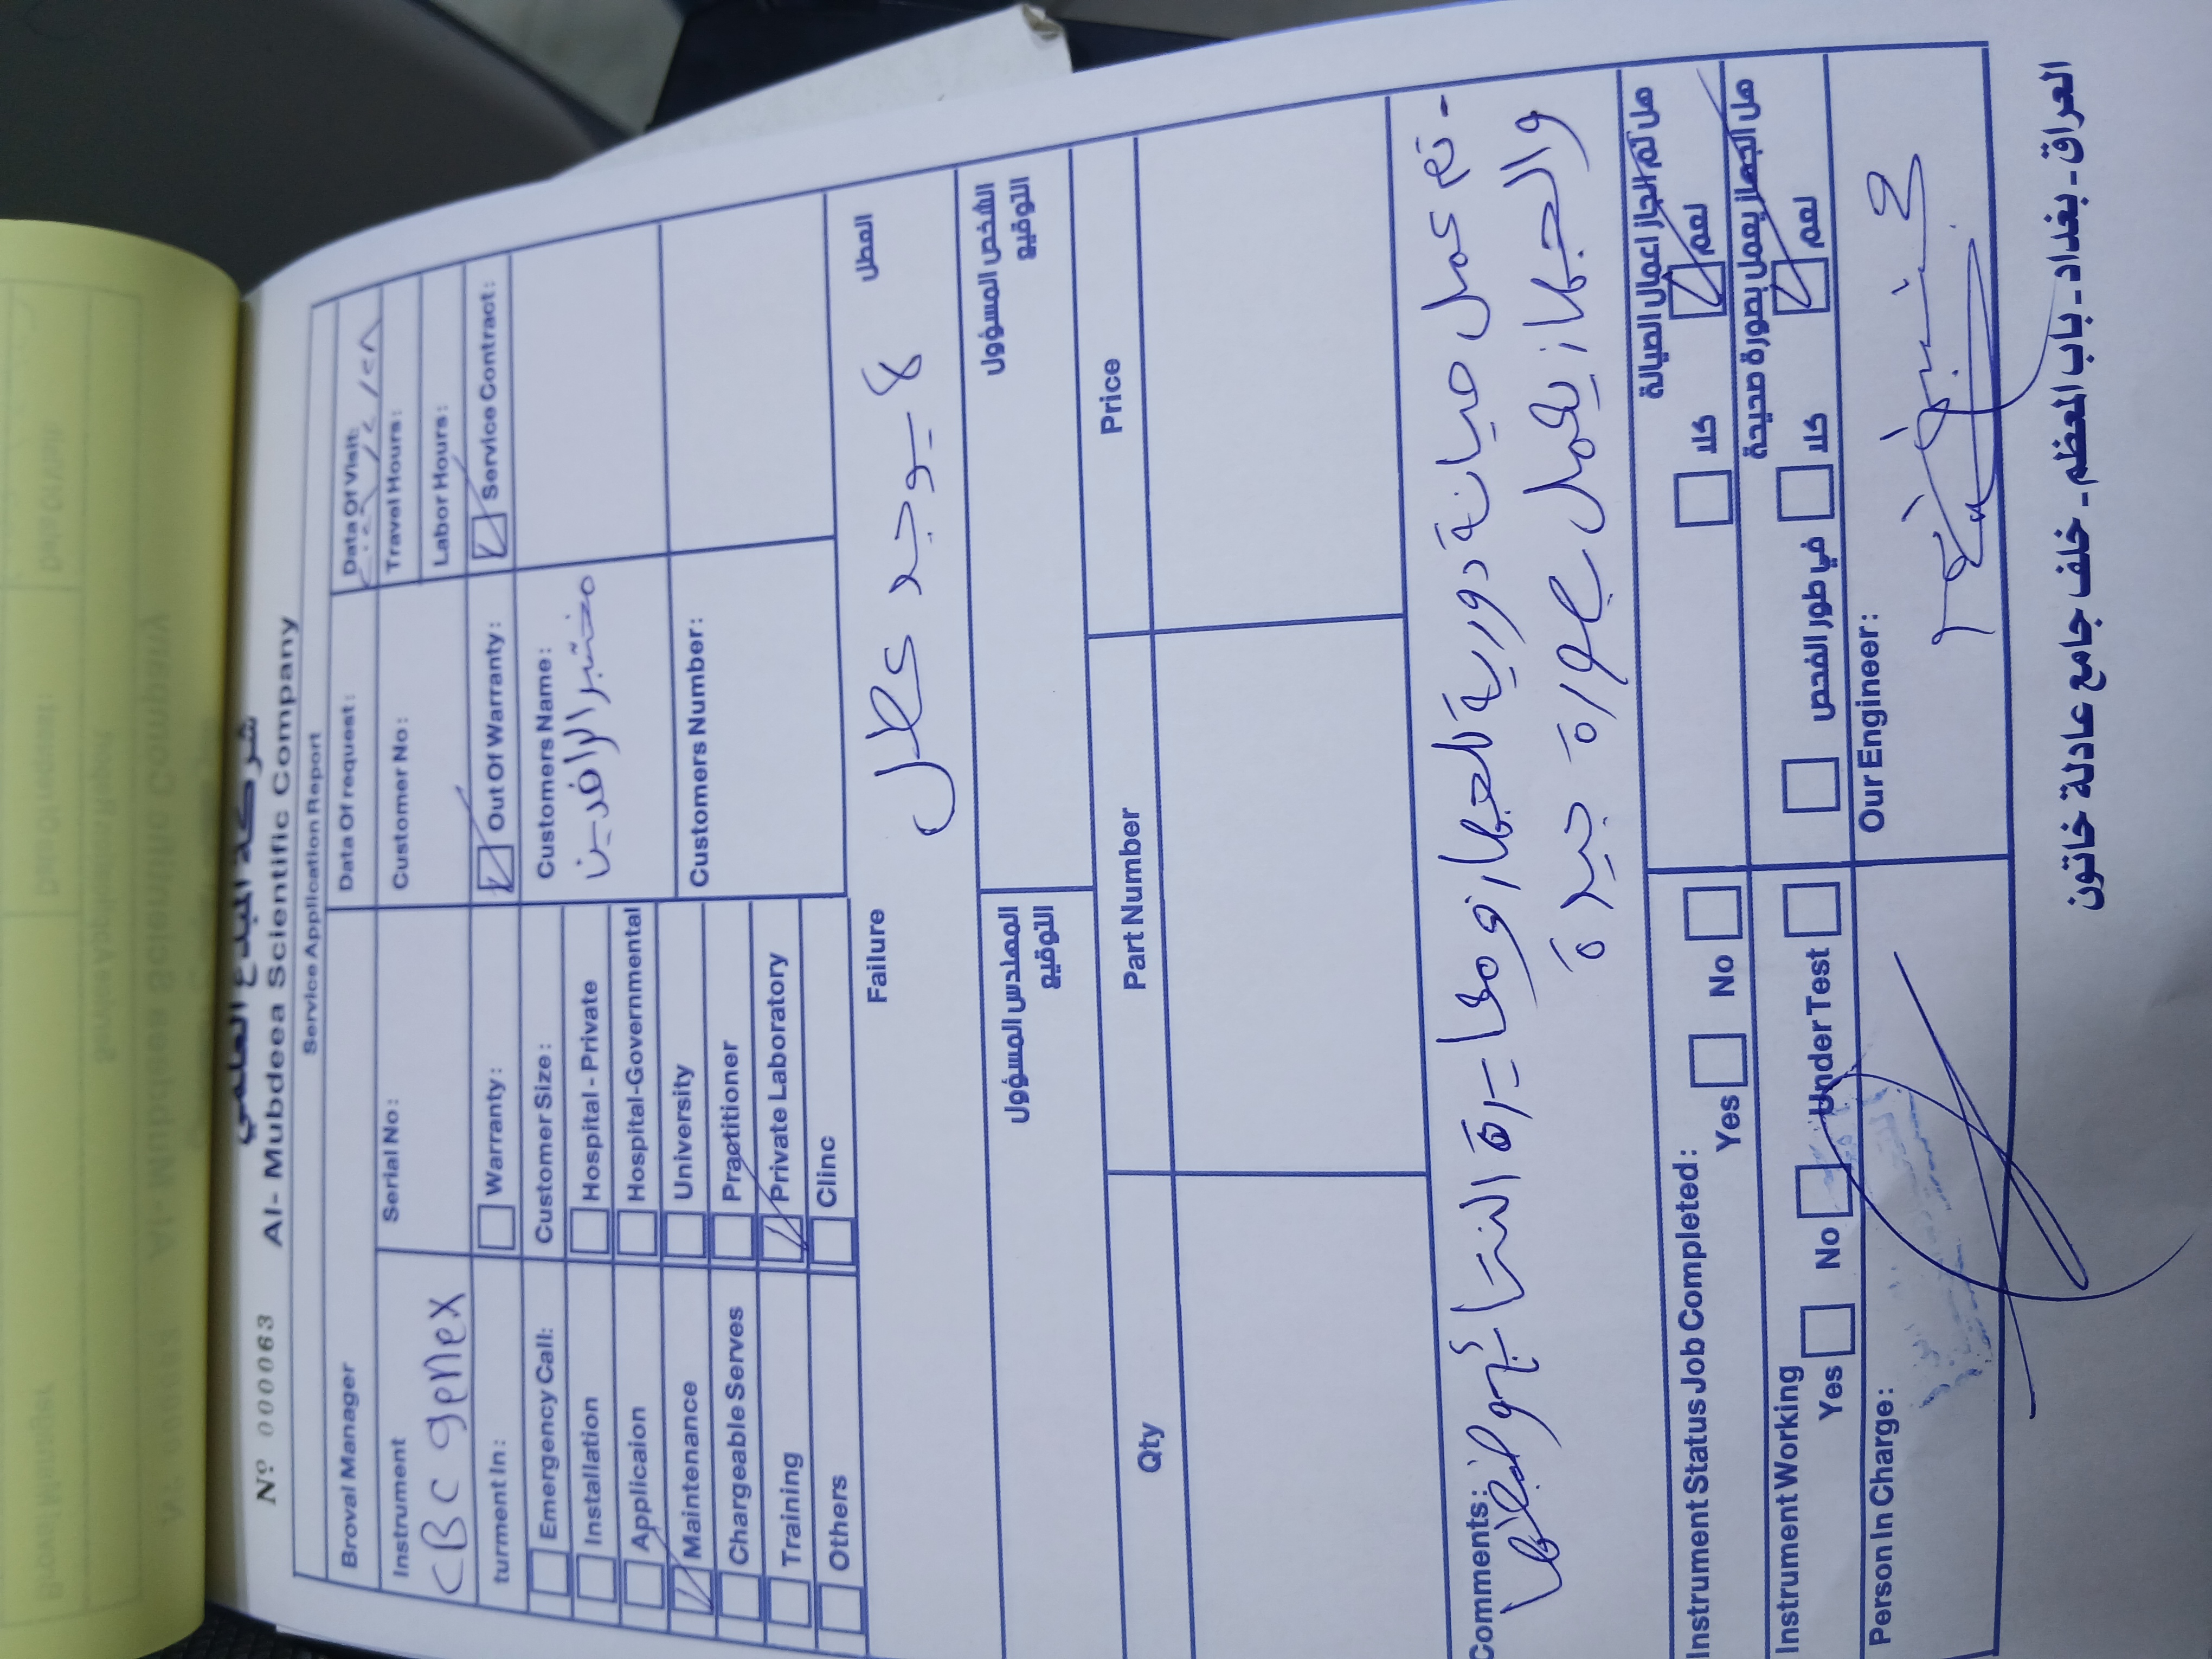 شركة المبدع العلمي
Nº 000063 Al- Mubdeea Scientific Company
Service Application Report
Broval Manager
Data Of request:
Data Of Visit:
Instrument
CBC genex
Serial No:
Customer No:
Travel Hours:
Labor Hours:
turment In:
Warranty:
Out Of Warranty:
Service Contract:
Emergency Call:
Installation
Applicaion
Maintenance
Chargeable Serves
Training
Others
Customer Size:
Hospital - Private
Hospital-Governmental
University
Practitioner
Private Laboratory
Clinc
Customers Name:
مختبر الرافدين
Customers Number:
Failure العطل
لا يوجد عطل
المهندس المسؤول
التوقيع
الشخص المسؤول
التوقيع
Qty Part Number Price
Comments:
- تم عمل صيانة دورية للجهاز ومعايرة النتائج وضبطها
والجهاز يعمل بصورة جيدة
Instrument Status Job Completed:
Yes No
هل تم انجاز اعمال الصيانة
نعم كلا
Instrument Working
Yes No Under Test
هل الجهاز يعمل بصورة صحيحة
نعم كلا في طور الفحص
Person In Charge:
Our Engineer:
العراق - بغداد - باب المعظم - خلف جامع عادلة خاتون